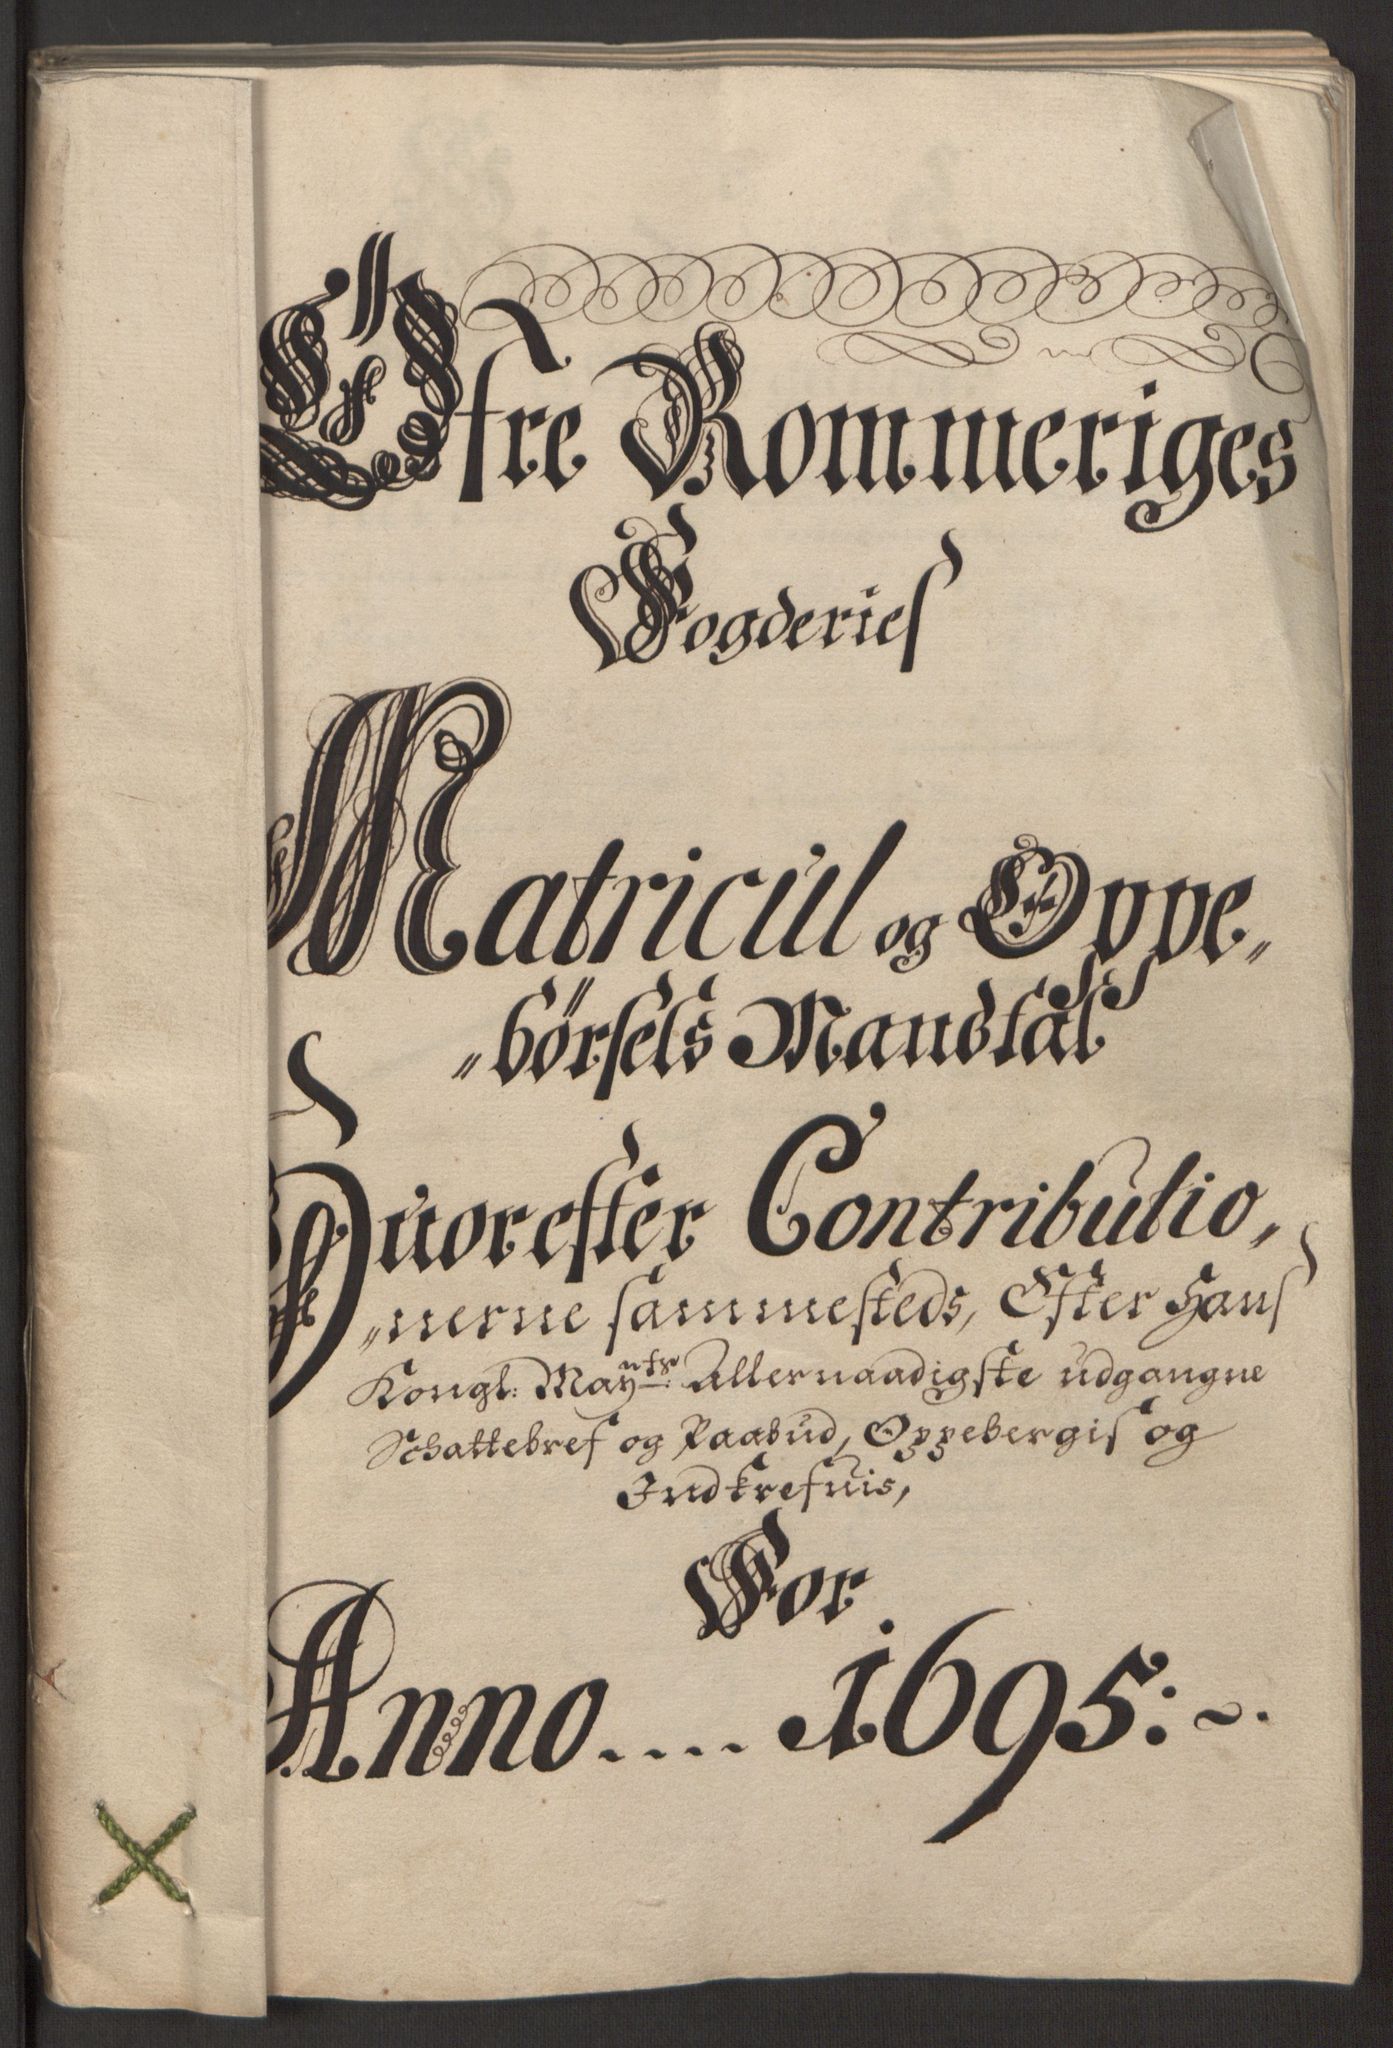 Öfre Rommeriges
Fogderies
Matricul og Oppe„
„börsels Mandtal
Huorefter Contributio„
„nerne sammesteds, Efter Hans
Kongl: Mayᵗˢ: Allernaadigste udgangne
Schattebref og Paabud, Oppebergis og
Indkrefuis,
For
Anno.... 1695:~.